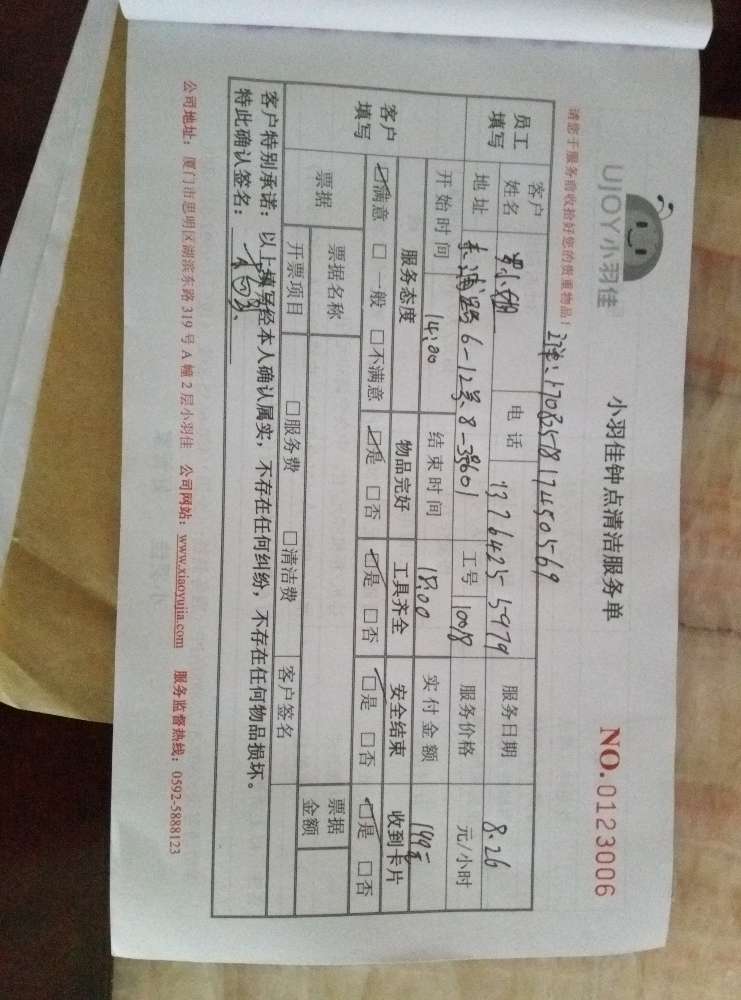 UJOY小羽佳
小羽佳钟点清洁服务单
NO.0123006
请您于服务前收拾好您的贵重物品！
员工填写 客户姓名 电话 服务日期 8.26
地址 工号 10018 服务价格 元/小时
客户填写 开始时间 14:00 结束时间 18:00 实付金额
服务态度 物品完好 工具齐全 安全结束 收到卡片
☑满意 □一般 □不满意 ☑是 □否 ☑是 □否 ☑是 □否 ☑是 □否
票据 票据名称 票据金额
开票项目 □服务费 □清洁费 客户签名
客户特别承诺：以上填写经本人确认属实，不存在任何纠纷，不存在任何物品损坏。
特此确认签名：
公司地址：厦门市思明区湖滨东路319号A幢2层小羽佳 公司网站：www.xiaoyujia.com 服务监督热线：0592-5888123